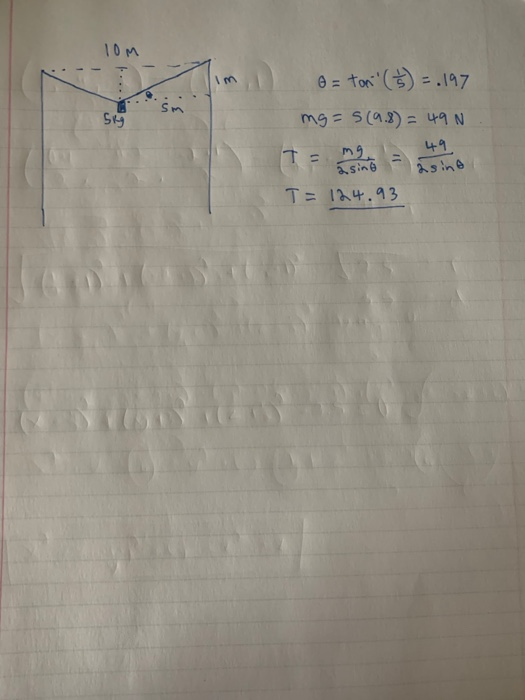 10 m
1m
θ
5m
5kg
θ = tan⁻¹(1/5) = .197
mg = 5(9.8) = 49 N
T = mg/2sinθ = 49/2sinθ
T = 124.93